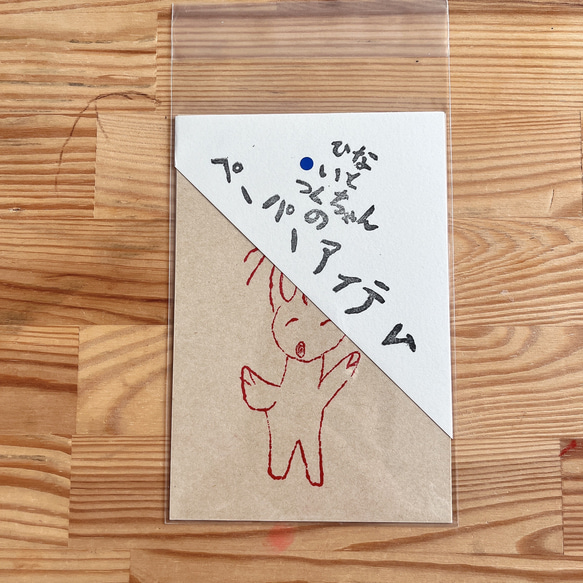 ひな
いと
つくちゃん
の
ペーパーアイテム